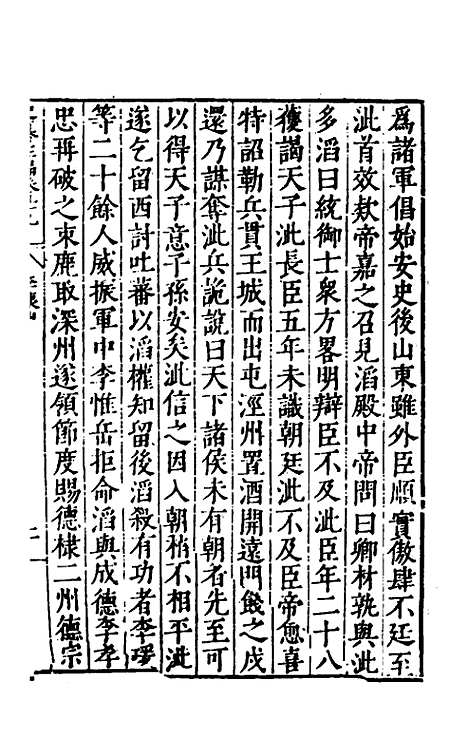 為諸軍倡始安史後山東雖外臣順實傲肆不廷至
泚首效欵帝嘉之召見滔殿中帝問曰卿材孰與泚
多滔曰統御士衆方畧明辯臣不及泚臣年二十八
獲謁天子泚長臣五年未識朝廷泚不及臣帝愈喜
特詔勒兵貫王城而出屯涇州置酒開遠門餞之戍
還乃謀奪泚兵詭說曰天下諸侯未有朝者先至可
以得天子意子孫安矣泚信之因入朝稍不相平泚
遂乞留西討吐蕃以滔權知留後滔殺有功者李瑗
等二十餘人威振軍中李惟岳拒命滔與成德李孝
忠再破之束鹿取深州遂領節度賜德棣二州德宗